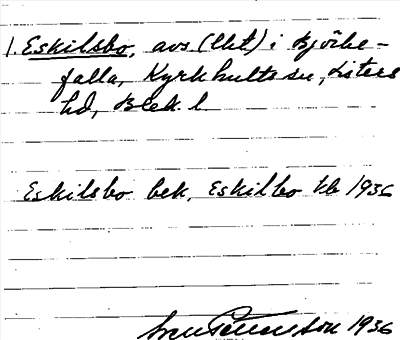 1. Eskilsbo, avs (lht) i Björke-
falla, Kyrkhults sn, Listers
hd, Blek. l
Eskilsbo bek, Eskilbo kb 1936
1936